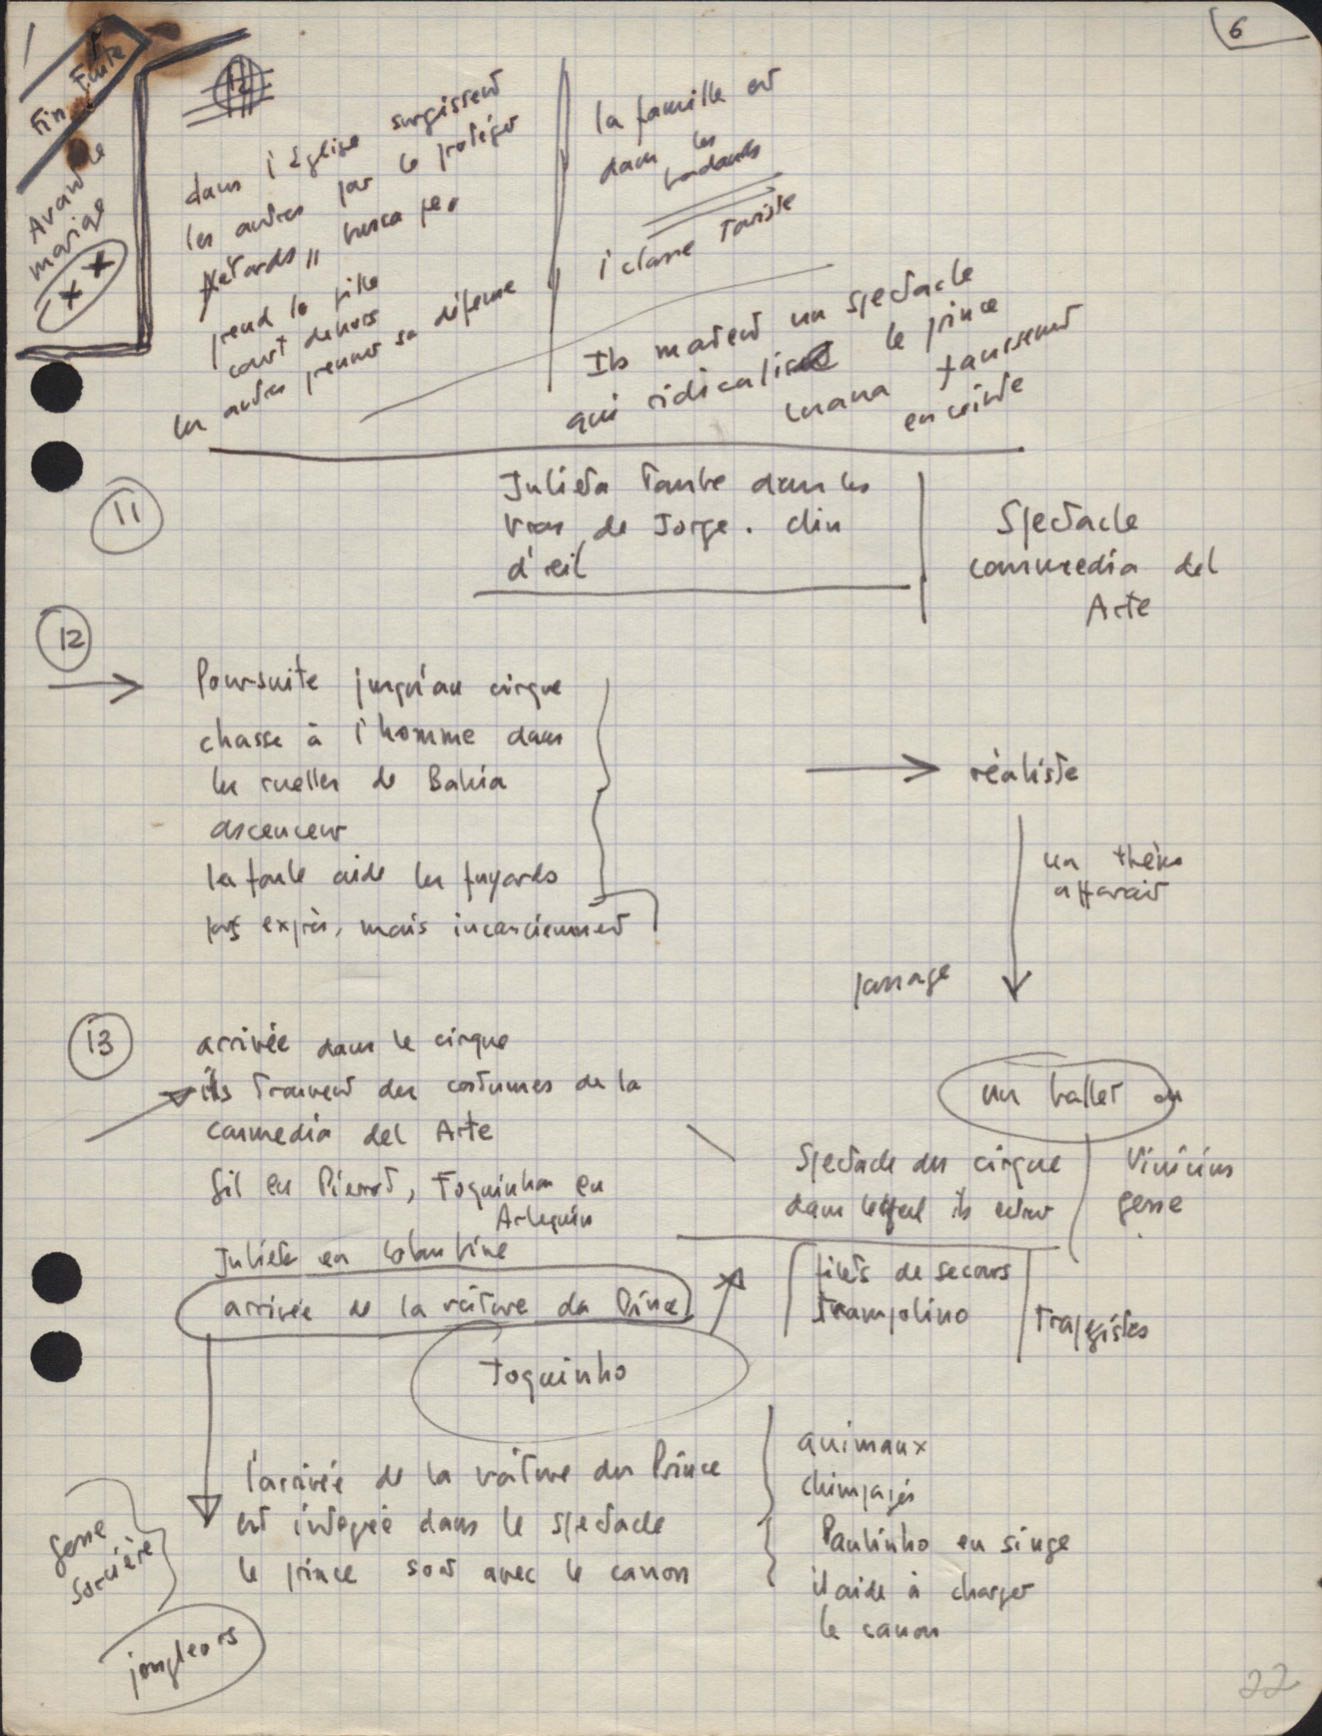 6
Fin Fuite
Avant le
mariage
x x
12
dans l'église surgissent
les autres par le protéger
pétards, busca pe.
prend la fille
court dehors
les autres prennent sa défense
la famille est
dans les
1 classe Touriste
Ils mατent un spectacle
qui ridicalise le prince
faussement
enceinte
11
Julieta tombe dans les
bras de Jorge. clin
d'œil
Spectacle
commedia del
Arte
12
Poursuite jusqu'au cirque
chasse à l'homme dans
les ruelles de Bahia
ascenceur
la foule aide les fuyards
pas exprès, mais inconsciemment
réaliste
un thème
apparait
passage
13
arrivée dans le cirque
ils trouvent des costumes de la
commedia del Arte
Gil en Pierrot, Toquinho en
Arlequin
Julieta en Colombine
arrivée de la voiture du Prince
Toquinho
un ballet ou
Spectacle du cirque
dans lequel ils entrent
Vinicius
gesse
filets de secours
trampolino
trapézistes
l'arrivée de la voiture du Prince
est integrée dans le spectacle
le prince sort avec le canon
gesse
sorcière
jongleurs
animaux
chimpazés
Paulinho en singe
il aide à charger
le canon
22